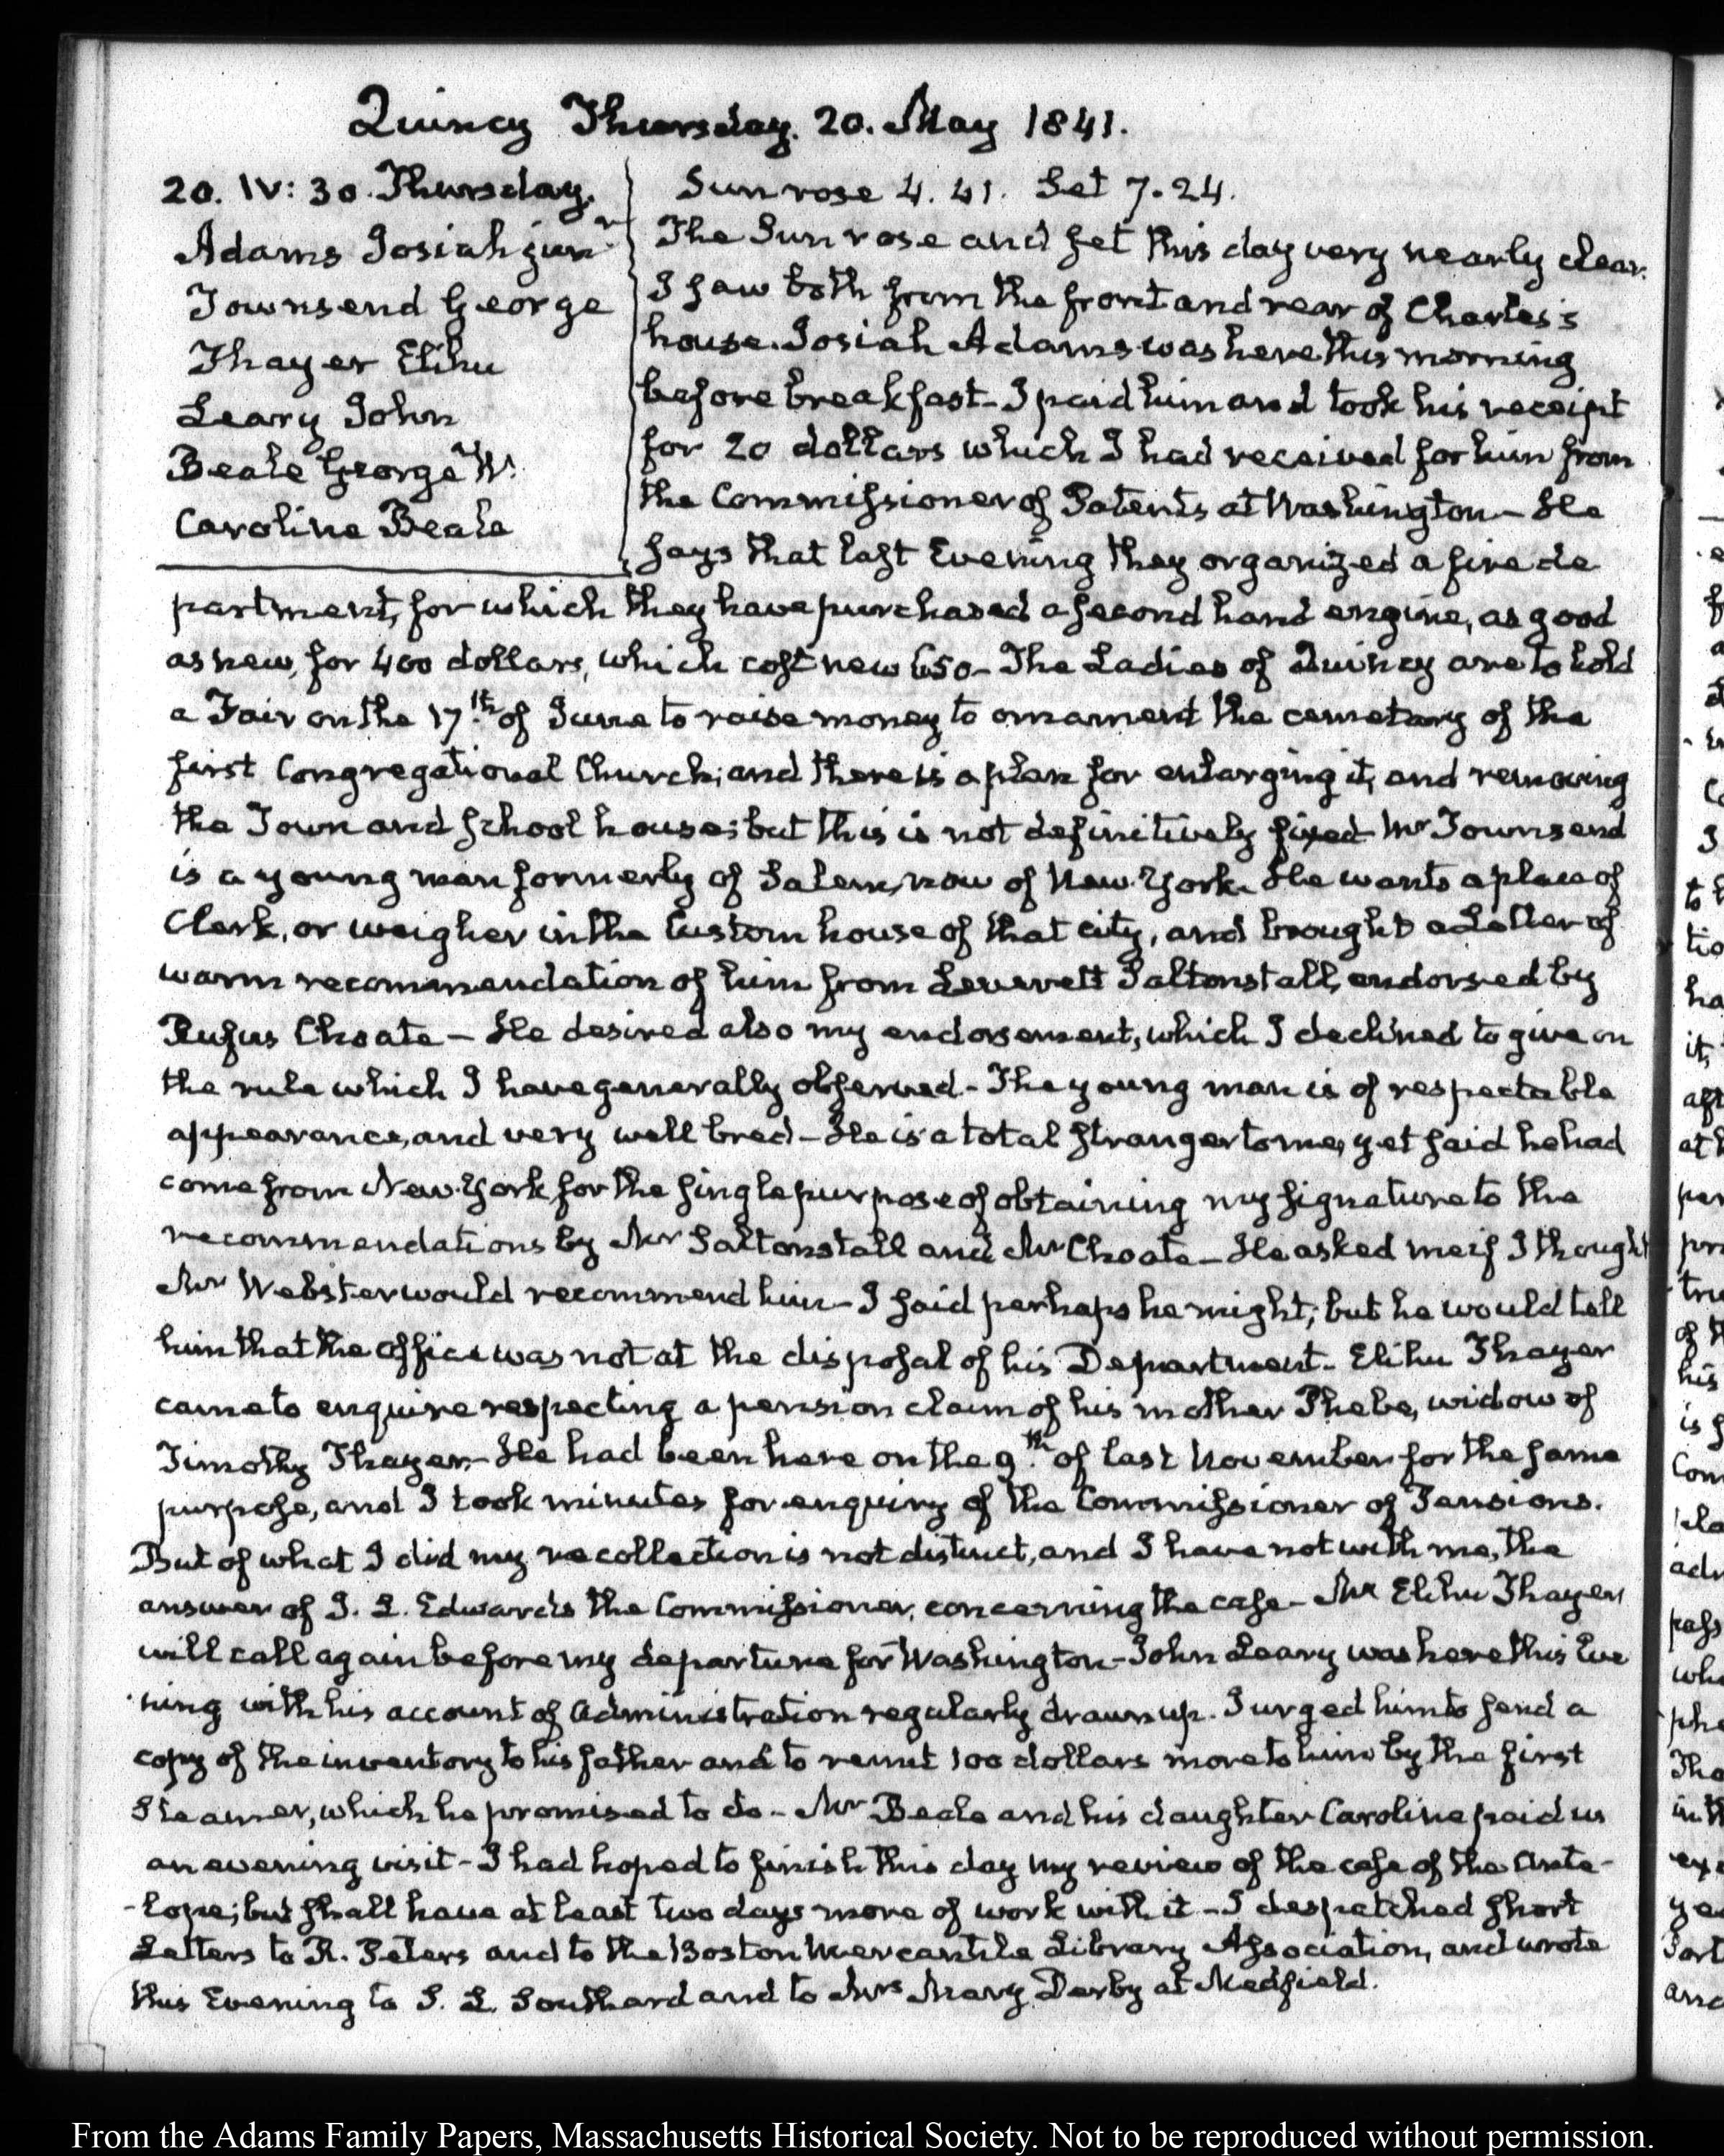 Quincy Thursday. 20. May 1841.
20. IV: 30. Thursday.
Adams Josiah junr
Townsend George
Thayer Elihu
Leary John
Beale George W.
Caroline Beale
Sun rose 4. 41. Set 7. 24.
The Sun rose and set this day very nearly clear.
I saw both from the front and rear of Charles's
house. Josiah Adams was here this morning
before breakfast - I paid him and took his receipt
for 20 dollars which I had received for him from
the Commissioner of Patents at Washington - He
says that last Evening they organized a fire de
partment, for which they have purchased a second hand engine, as good
as new, for 400 dollars, which cost new 650 - The Ladies of Quincy are to hold
a Fair on the 17th. of June to raise money to ornament the cemetary of the
first Congregational Church; and there is a plan for enlarging it, and removing
the Town and school house; but this is not definitively fixed - Mr Townsend
is a young man formerly of Salem, now of New-York. He wants a place of
Clerk, or weigher in the Custom house of that city, and brought a Letter of
warm recommendation of him from Leverett Saltonstall, endorsed by
Rufus Choate - He desired also my endorsement, which I declined to give on
the rule which I have generally observed. - The young man is of respectable
appearance, and very well bred - He is a total stranger to me, yet said he had
come from New-York for the single purpose of obtaining my signature to the
recommendations by Mr Saltonstall and Mr Choate - He asked me if I thought
Mr Webster would recommend him - I said perhaps he might; but he would tell
him that the office was not at the disposal of his Department - Elihu Thayer
came to enquire respecting a pension claim of his mother Phebe, widow of
Timothy Thayer - He had been here on the 9th. of last November for the same
purpose, and I took minutes for enquiry of the Commissioner of Pensions.
But of what I did my recollection is not distinct, and I have not with me, the
answer of J. L. Edwards the Commissioner, concerning the case - Mr Elihu Thayer
will call again before my departure for Washington - John Leary was here this Eve
ning with his account of Administration regularly drawn up. I urged him to send a
copy of the inventory to his father and to remit 100 dollars more to him by the first
Steamer, which he promised to do - Mr Beale and his daughter Caroline paid us
an evening visit - I had hoped to finish this day my review of the case of the Ante-
-lope; but shall have at least two days more of work with it - I despatched short
Letters to R. Peters and to the Boston Mercantile Library Association, and wrote
this Evening to S. L. Southard and to Mrs Mary Derby at Medfield.
From the Adams Family Papers, Massachusetts Historical Society. Not to be reproduced without permission.